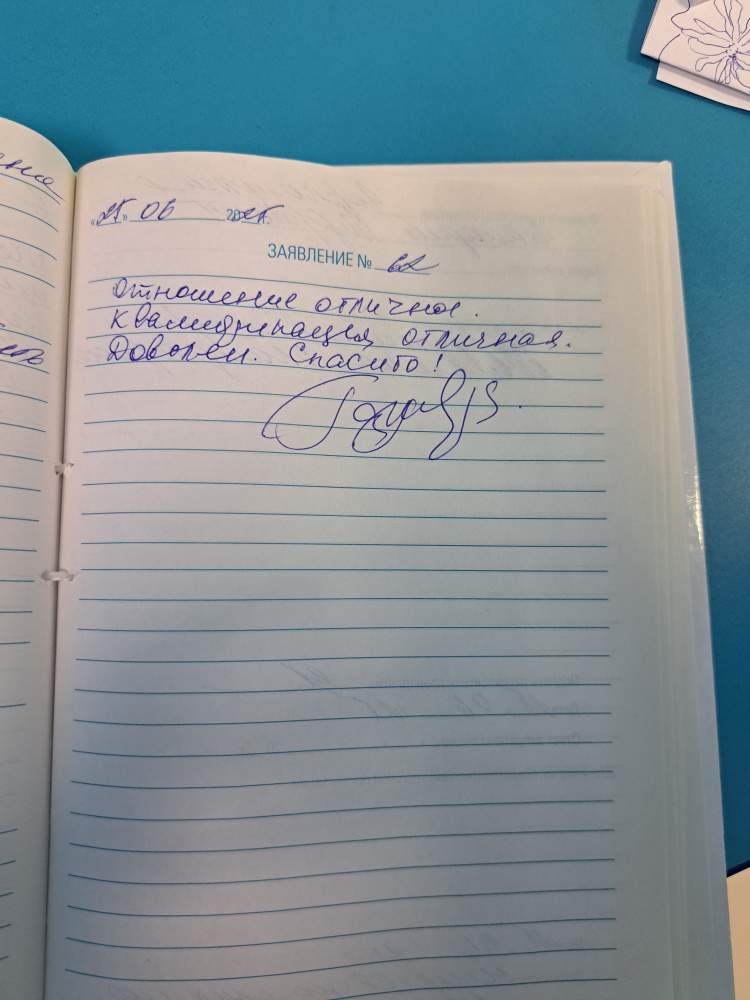 «25» 06 2025г.
ЗАЯВЛЕНИЕ № 62
Отношение отличное.
Квалификация отличная.
Доволен. Спасибо!